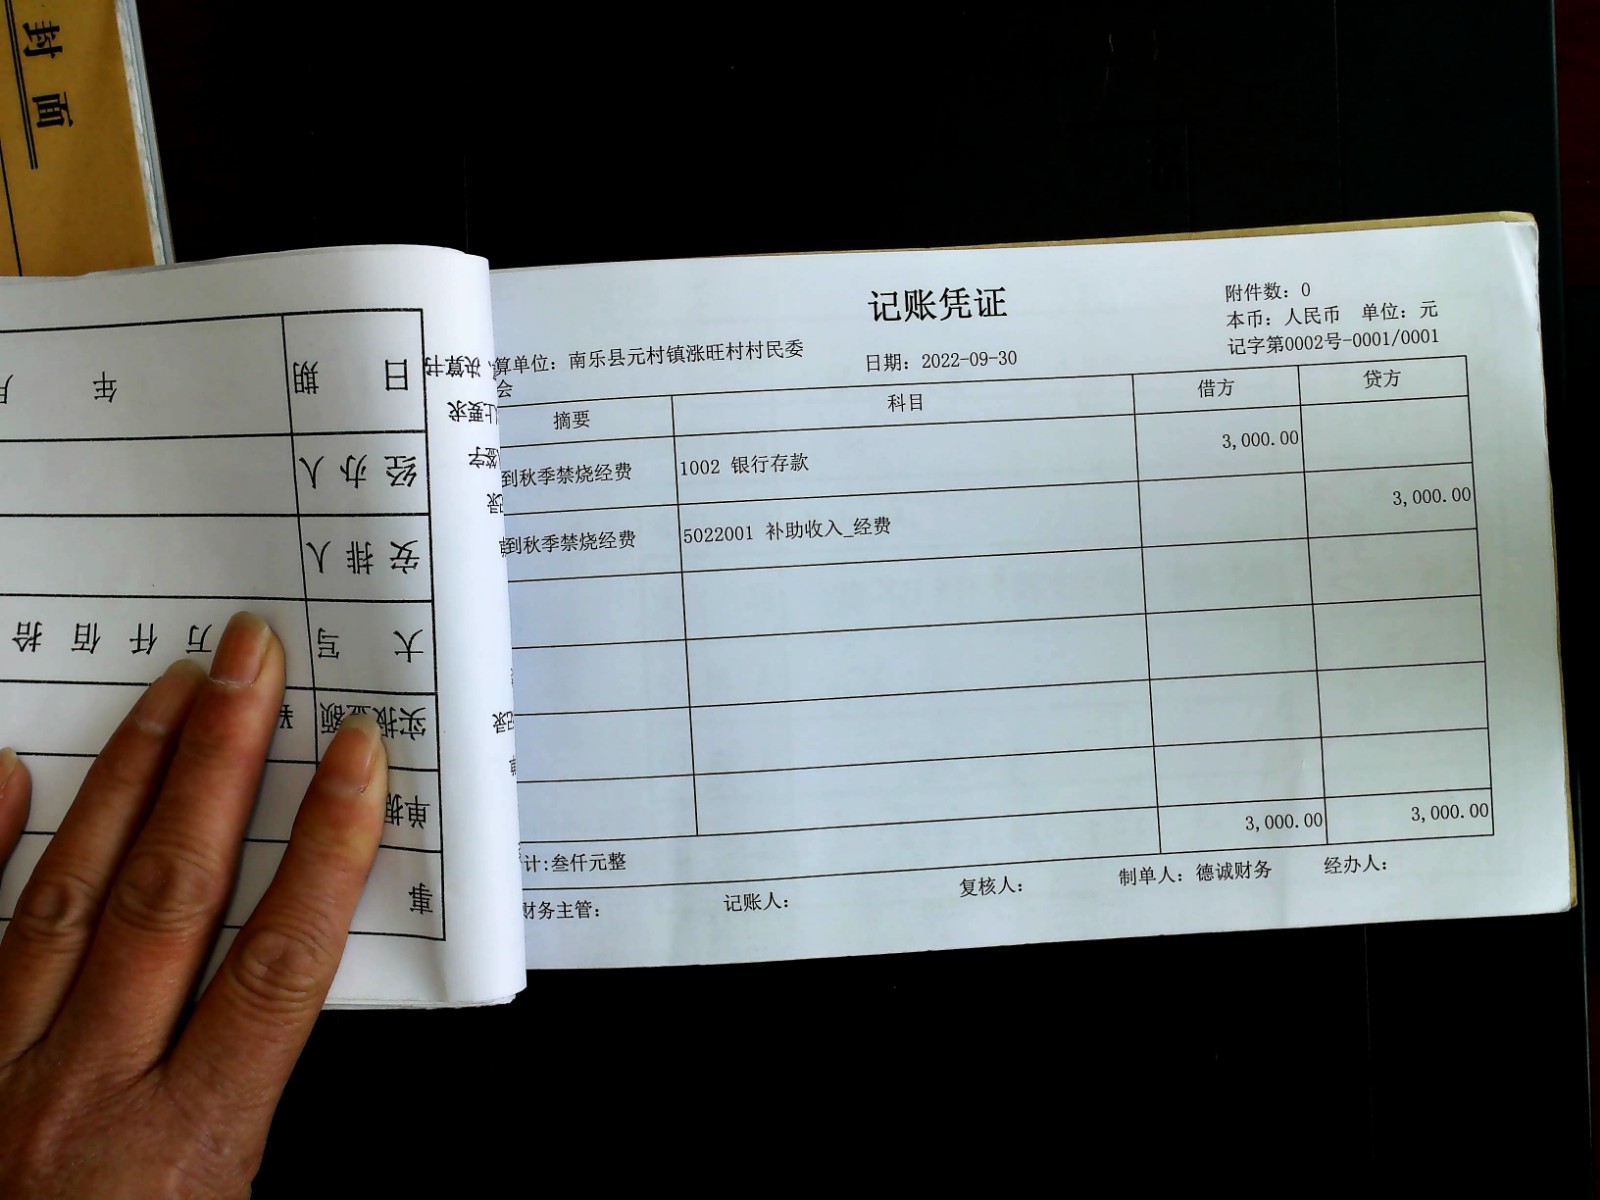 封面
记账凭证
附件数：0
本币：人民币 单位：元
记字第0002号-0001/0001
算单位：南乐县元村镇涨旺村村民委
会
日期：2022-09-30
摘要 科目 借方 贷方
到秋季禁烧经费 1002 银行存款 3,000.00
到秋季禁烧经费 5022001 补助收入_经费 3,000.00
3,000.00 3,000.00
计:叁仟元整
财务主管： 记账人： 复核人： 制单人：德诚财务 经办人：
日 期 年
经办人
安排人
大 写 万 仟 佰 拾
实报金额 ¥
单据
事
决算书
让要求
签字
录
记录